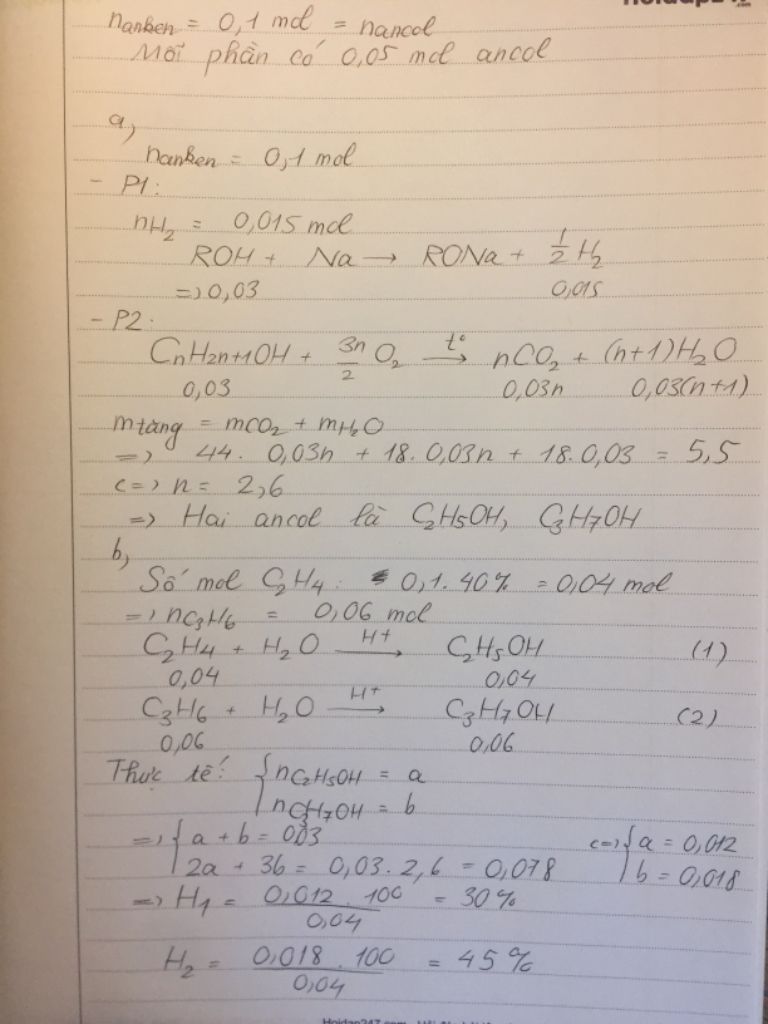 nanken = 0,1 mol = nancol
Mỗi phần có 0,05 mol ancol
a,
nanken = 0,1 mol
- P1:
nH₂ = 0,015 mol
ROH + Na → RONa + 1/2 H₂
=> 0,03 0,015
- P2:
CnH2n+1OH + 3n/2 O₂ t°→ nCO₂ + (n+1)H₂O
0,03 0,03n 0,03(n+1)
mtăng = mCO₂ + mH₂O
=> 44. 0,03n + 18. 0,03n + 18. 0,03 = 5,5
<=> n = 2,6
=> Hai ancol là C₂H₅OH, C₃H₇OH
b,
Số mol C₂H₄: 0,1. 40% = 0,04 mol
=> nC₃H₆ = 0,06 mol
C₂H₄ + H₂O H+→ C₂H₅OH (1)
0,04 0,04
C₃H₆ + H₂O H+→ C₃H₇OH (2)
0,06 0,06
Thực tế: { nC₂H₅OH = a
nC₃H₇OH = b
=> { a + b = 0,03 <=> { a = 0,012
2a + 3b = 0,03. 2,6 = 0,078 b = 0,018
=> H₁ = 0,012 . 100 / 0,04 = 30%
H₂ = 0,018 . 100 / 0,04 = 45%